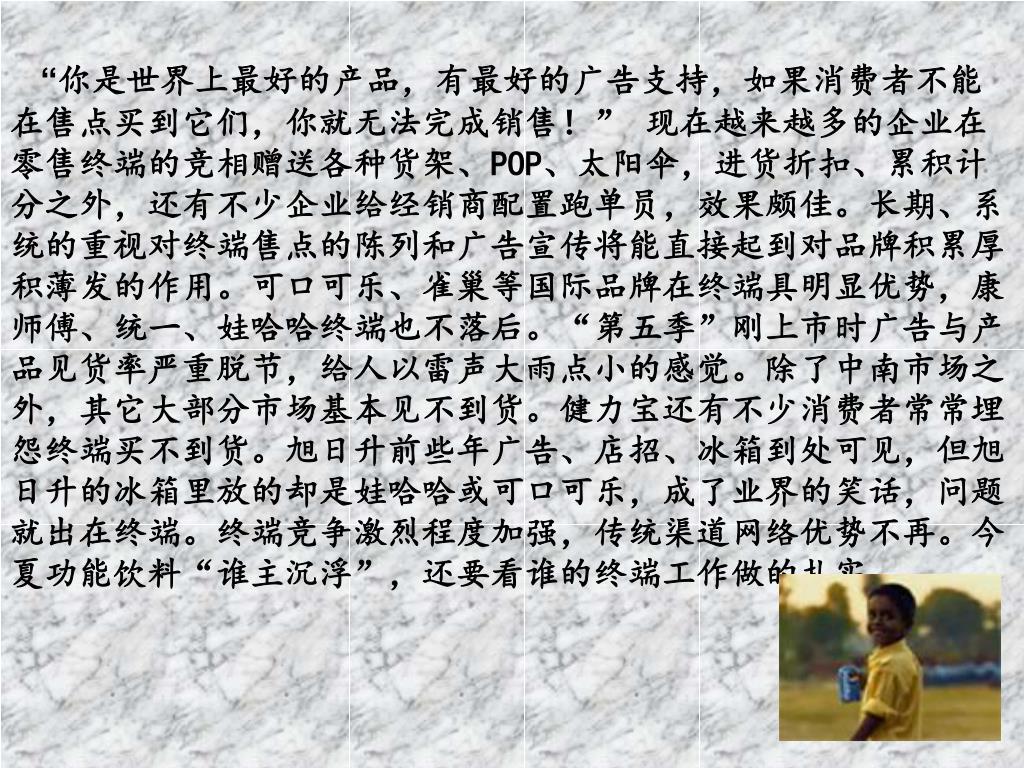 “你是世界上最好的产品，有最好的广告支持，如果消费者不能
在售点买到它们，你就无法完成销售！” 现在越来越多的企业在
零售终端的竞相赠送各种货架、POP、太阳伞，进货折扣、累积计
分之外，还有不少企业给经销商配置跑单员，效果颇佳。长期、系
统的重视对终端售点的陈列和广告宣传将能直接起到对品牌积累厚
积薄发的作用。可口可乐、雀巢等国际品牌在终端具明显优势，康
师傅、统一、娃哈哈终端也不落后。“第五季”刚上市时广告与产
品见货率严重脱节，给人以雷声大雨点小的感觉。除了中南市场之
外，其它大部分市场基本见不到货。健力宝还有不少消费者常常埋
怨终端买不到货。旭日升前些年广告、店招、冰箱到处可见，但旭
日升的冰箱里放的却是娃哈哈或可口可乐，成了业界的笑话，问题
就出在终端。终端竞争激烈程度加强，传统渠道网络优势不再。今
夏功能饮料“谁主沉浮”，还要看谁的终端工作做的扎实